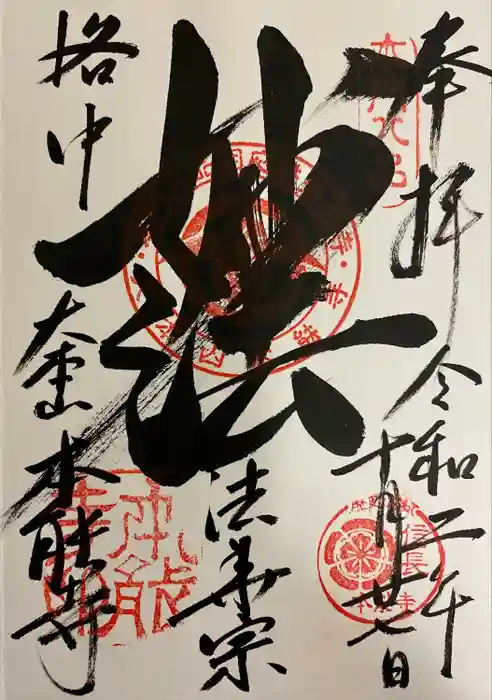 奉拝 令和二年
十月廿七日
妙法
法華宗
洛中 大本山 本能寺
信長